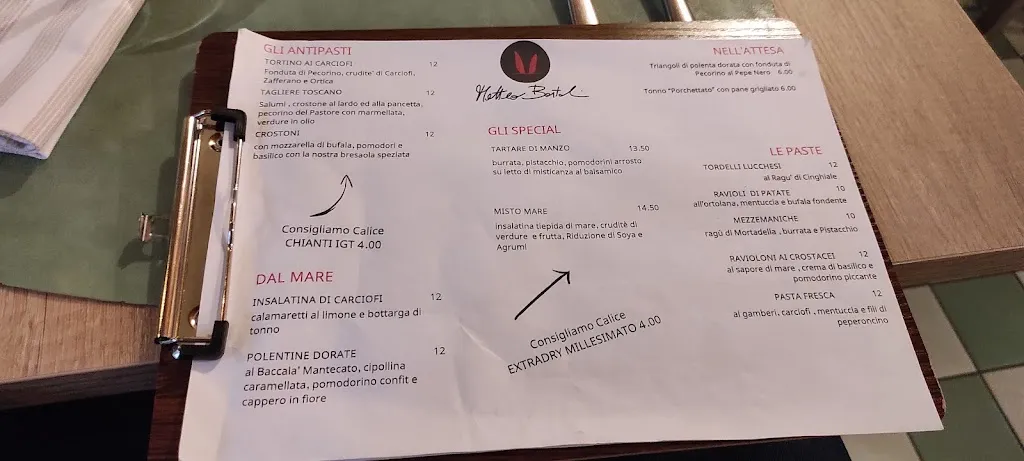 GLI ANTIPASTI
TORTINO AI CARCIOFI 12
Fonduta di Pecorino, crudite' di Carciofi,
Zafferano e Ortica
TAGLIERE TOSCANO 12
Salumi , crostone al lardo ed alla pancetta,
pecorino del Pastore con marmellata,
verdure in olio
CROSTONI 12
con mozzarella di bufala, pomodori e
basilico con la nostra bresaola speziata
Consigliamo Calice
CHIANTI IGT 4.00
DAL MARE
INSALATINA DI CARCIOFI 12
calamaretti al limone e bottarga di
tonno
POLENTINE DORATE 12
al Baccala' Mantecato, cipollina
caramellata, pomodorino confit e
cappero in fiore
Matteo
GLI SPECIAL
TARTARE DI MANZO 13.50
burrata, pistacchio, pomodorini arrosto
su letto di misticanza al balsamico
MISTO MARE 14.50
insalatina tiepida di mare, crudité di
verdure e frutta, Riduzione di Soya e
Agrumi
Consigliamo Calice
EXTRADRY MILLESIMATO 4.00
NELL'ATTESA
Triangoli di polenta dorata con fonduta di
Pecorino al Pepe Nero 6.00
Tonno "Porchettato" con pane grigliato 6.00
LE PASTE
TORDELLI LUCCHESI 12
al Ragu' di Cinghiale
RAVIOLI DI PATATE 10
all'ortolana, mentuccia e bufala fondente
MEZZEMANICHE 10
ragù di Mortadella , burrata e Pistacchio
RAVIOLONI AI CROSTACEI 12
al sapore di mare , crema di basilico e
pomodorino piccante
PASTA FRESCA 12
ai gamberi, carciofi , mentuccia e fili di
peperoncino